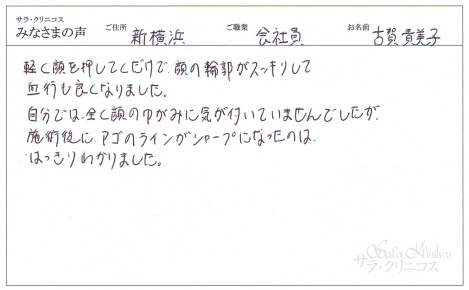 サラ・クリニコス
みなさまの声 ご住所 新横浜 ご職業 会社員 お名前 古賀貴美子
軽く顔を押してくだけで、顔の輪郭がスッキリして
血行も良くなりました。
自分では、全く顔のゆがみに気が付いていませんでしたが、
施術後に、アゴのラインがシャープになったのは、
はっきりわかりました。
Sala Klinikos
サラ・クリニコス